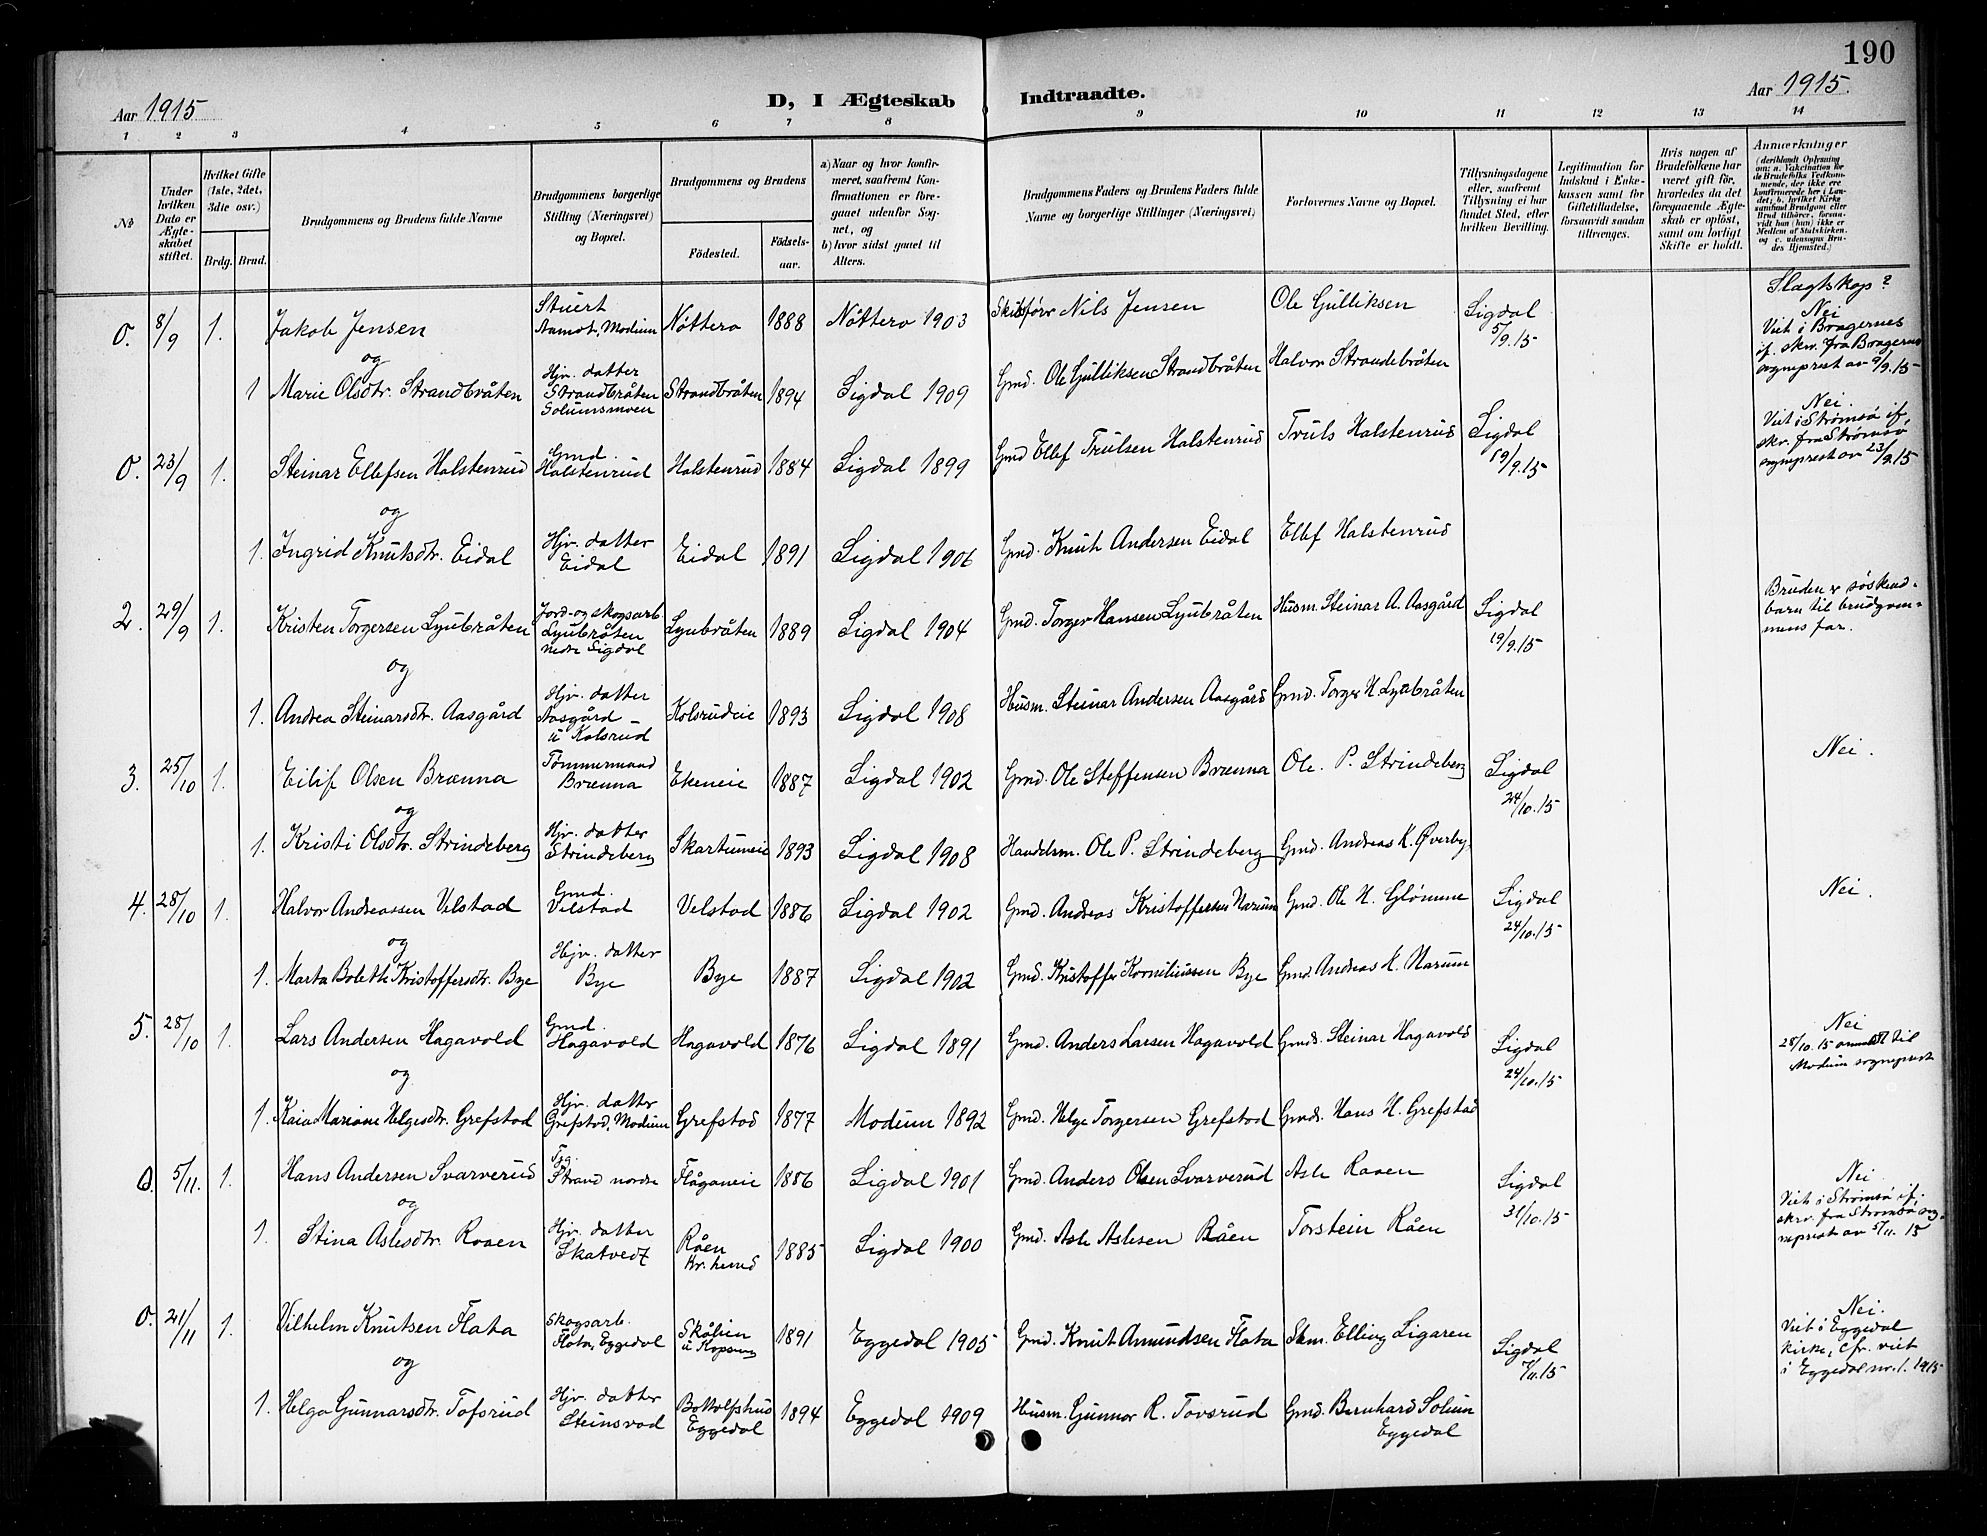 190
Aar 1915.
D, I Ægteskab Indtraadte.
Aar 1915.
1 2 3 4 5 6 7 8 9 10 11 12 13 14
No
Under hvilken Dato er Ægteskabet stiftet.
Hvilket Gifte (1ste, 2det, 3die osv.)
Brdg. Brud.
Brudgommens og Brudens fulde Navne
Brudgommens borgerlige Stilling (Næringsvei) og Bopæl.
Brudgommens og Brudens
Födested.
Födselsaar.
a) Naar og hvor konfirmeret, saafremt Konfirmationen er foregaaet udenfor Sognet, og
b) hvor sidst gaaet til Alters.
Brudgommens Faders og Brudens Faders fulde Navne og borgerlige Stillinger (Næringsvei)
Forlovernes Navne og Bopæl.
Tillysningsdagene eller, saafremt Tillysning ei har fundet Sted, efter hvilken Bevilling.
Legitimation for Indskud i Enkekassen samt for Giftetilladelse, forsaavidt saadan tiltrænges.
Hvis nogen af Brudefolkene har været gift för, hvorledes da det foregaaende Ægteskab er oplöst, samt om lovligt Skifte er holdt.
Anmerkninger
(deriblandt Oplysning om: a. Vakcination for de Brudefolks Vedkommende, der ikke ere konfirmerede her i Landet; b. hvilket Kirkesamfund Brudgom eller Brud tilhörer, forsaavidt han (hun) ikke er Medlem af Statskirken. og c. udensogns Brudes Hjemsted.)
Slagtskap?
0. 8/9 1. Jakob Jensen Stuert Aamot, Modum Nøtterø 1888 Nøtterø 1903 Skibsförer Nils Jensen Ole Gulliksen Sigdal 5/9.15 Nei
Viet i Bragernes
if. skr. fra Bragernes
sogneprest av 9/9.15
og
1 Marie Olsdtr. Strandbråten Hjv. datter Strandbråten Solumsmoen Strandbråten 1894 Sigdal 1909 Gmd. Ole Gulliksen Strandbråten Halvor Strandebråten
0. 23/9 1. Steinar Ellefsen Halstenrud Gmd. Halstenrud Halstenrud 1884 Sigdal 1899 Gmd Ellef Trulsen Halstenrud Truls Halstenrud Sigdal 19/9.15 Nei.
Viet i Strømsø if.
skr. fra Strømsø
sogneprest av 23/9.15
og
1. Ingrid Knutsdtr. Eidal Hjv. datter Eidal Eidal 1891 Sigdal 1906 Gmd. Knut Andersen Eidal Ellef Halstenrud
2. 29/9 1. Kristen Torgersen Lyubråten Jord- og skogsarb. Lyubråten nedre Sigdal Lyubråten 1889 Sigdal 1904 Gmd. Torger Hansen Lyubråten Husm. Steinar A. Aasgård Sigdal 19/9.15 Bruden er søskend-
barn til brudgom-
mens far.
og
1. Andrea Steinarsdtr. Aasgård Hjv. datter Aasgård u Kolsrud Kolsrudeie 1893 Sigdal 1908 Husm. Steinar Andersen Aasgård Gmd. Torger H. Lyubråten
3. 25/10 1. Eilif Olsen Brænna Tømmermand Brænna Ekeneie 1887 Sigdal 1902 Gmd. Ole Steffensen Brænna Ole. P. Strindeberg Sigdal 24/10.15 Nei.
og
1. Kristi Olsdtr. Strindeberg Hjv. datter Strindeberg Skartumeie 1893 Sigdal 1908 Handelsm. Ole P. Strindeberg Gmd. Andreas K. Øverby
4. 28/10 1. Halvor Andreassen Velstad Gmd. Velstad Velstad 1886 Sigdal 1902 Gmd. Andreas Kristoffersen Narum Gmd. Ole H. Glømme Sigdal 24/10.15 Nei.
og
1. Marta Bolette Kristoffersdtr. Bye Hjv. datter Bye Bye 1887 Sigdal 1902 Gmd. Kristoffer Korneliussen Bye Gmd. Andreas K. Narum
5. 28/10 1. Lars Andersen Hagavold Gmd. Hagavold Hagavold 1876 Sigdal 1891 Gmd. Anders Larsen Hagavold Gmds. Steinar Hagavold Sigdal 24/10.15 Nei
28/10.15 anmeldt til
Modum sogneprest
og
1. Kaia Mariane Helgesdtr. Grefstad Hjv. datter Grefstad, Modum Grefstad 1877 Modum 1892 Gmd. Helge Torgersen Grefstad Gmds. Hans H. Grefstad
0. 5/11. 1. Hans Andersen Svarverud Strand nordre Flåganeie 1886 Sigdal 1901 Gmd. Anders Olsen Svarverud Asle Raaen Sigdal 31/10.15 Nei
Viet i Strømsø if.
skr. fra Strømsø sog-
neprest av 5/11.15
og
1. Stina Aslesdtr. Raaen Hjv. datter Skatvedt Råen Kr.herred 1885 Sigdal 1900 Gmd. Asle Aslesen Råen Torstein Råen
0. 21/11 1. Vilhelm Knutsen Flata Skogsarb. Flata, Eggedal 1891 Eggedal 1905 Gmd. Knut Amundsen Flata Skm. Elling Ligaren Sigdal 7/11.15 Nei.
Viet i Eggedal
kirke, cfr. viet
i Eggedal nr. 1. 1915
og
1. Helga Gunnarsdtr. Tofsrud Hjv. datter Steinsvad Botolfshus Eggedal 1894 Eggedal 1909 Husm. Gunnar R. Tovsrud Gmd. Bernhard Solum Eggedal